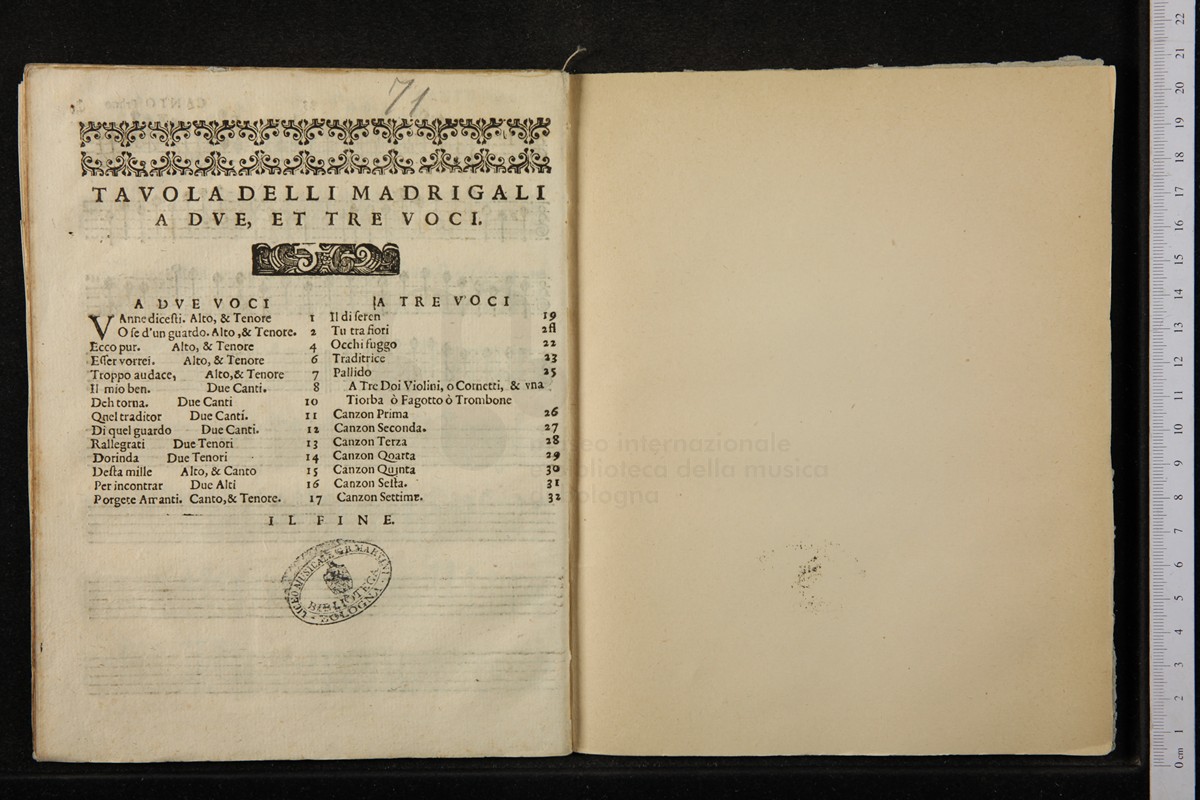 71
TAVOLA DELLI MADRIGALI
A DVE, ET TRE VOCI.
A DVE VOCI
VAnne dicesti. Alto, & Tenore 1
O se d'un guardo. Alto, & Tenore. 2
Ecco pur. Alto, & Tenore 4
Esser vorrei. Alto, & Tenore 6
Troppo audace, Alto,& Tenore 7
Il mio ben. Due Canti. 8
Deh torna. Due Canti 10
Quel traditor Due Canti. 11
Di quel guardo Due Canti. 12
Rallegrati Due Tenori 13
Dorinda Due Tenori 14
Desta mille Alto, & Canto 15
Per incontrar Due Alti 16
Porgete Amanti. Canto,& Tenore. 17
A TRE VOCI
Il di seren 19
Tu tra fiori 2fl
Occhi fuggo 22
Traditrice 23
Pallido 25
A Tre Doi Violini, o Cornetti, & vna
Tiorba ò Fagotto ò Trombone
Canzon Prima 26
Canzon Seconda. 27
Canzon Terza 28
Canzon Qoarta 29
Canzon Quinta 30
Canzon Sesta. 31
Canzon Settime. 32
IL FINE.
LICEO MUSICALE G.B. MARTINI
BIBLIOTECA
BOLOGNA
museo internazionale
e biblioteca della musica
di bologna